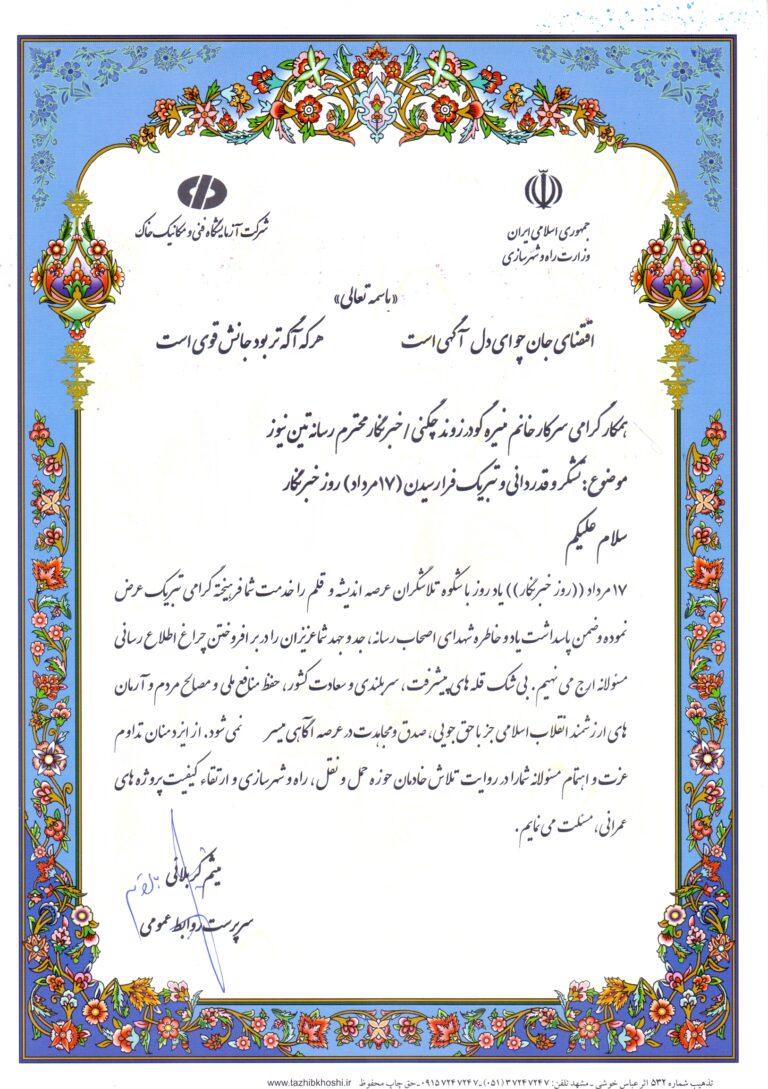 جمهوری اسلامی ایران
وزارت راه و شهرسازی
شرکت آزمایشگاه فنی و مکانیک خاک
«باسمه تعالی»
اقتضای جان چو ای دل آگهی است هر که آگه تر بود جانش قوی است
همکار گرامی سرکار خانم منیره گودرزوند چگنی / خبرنگار محترم رسانه تین نیوز
موضوع: تشکر و قدردانی و تبریک فرارسیدن (۱۷ مرداد) روز خبرنگار
سلام علیکم
۱۷ مرداد ((روز خبرنگار)) یاد روز با شکوه تلاشگران عرصه اندیشه و قلم را خدمت شما فرهیخته گرامی تبریک عرض
نموده و ضمن پاسداشت یاد و خاطره شهدای اصحاب رسانه، جد و جهد شما عزیزان را در بر افروختن چراغ اطلاع رسانی
مسئولانه ارج می نهیم. بی شک قله های پیشرفت، سربلندی و سعادت کشور، حفظ منافع ملی و مصالح مردم و آرمان
های ارزشمند انقلاب اسلامی جز با حق جویی، صدق و مجاهدت در عرصه آگاهی میسر نمی شود. از ایزد منان تداوم
عزت و اهتمام مسئولانه شما را در روایت تلاش خادمان حوزه حمل و نقل، راه و شهرسازی و ارتقاء کیفیت پروژه های
عمرانی، مسئلت می نمایم.
میثم کربلائی
سرپرست روابط عمومی
تذهیب شماره ۵۳۲ اثر عباس خوشی - مشهد تلفن: ۳۷۲۴۷۲۴۷ (۰۵۱) - ۰۹۱۵۷۲۴۷۲۴۷ - حق چاپ محفوظ www.tazhibkhoshi.ir